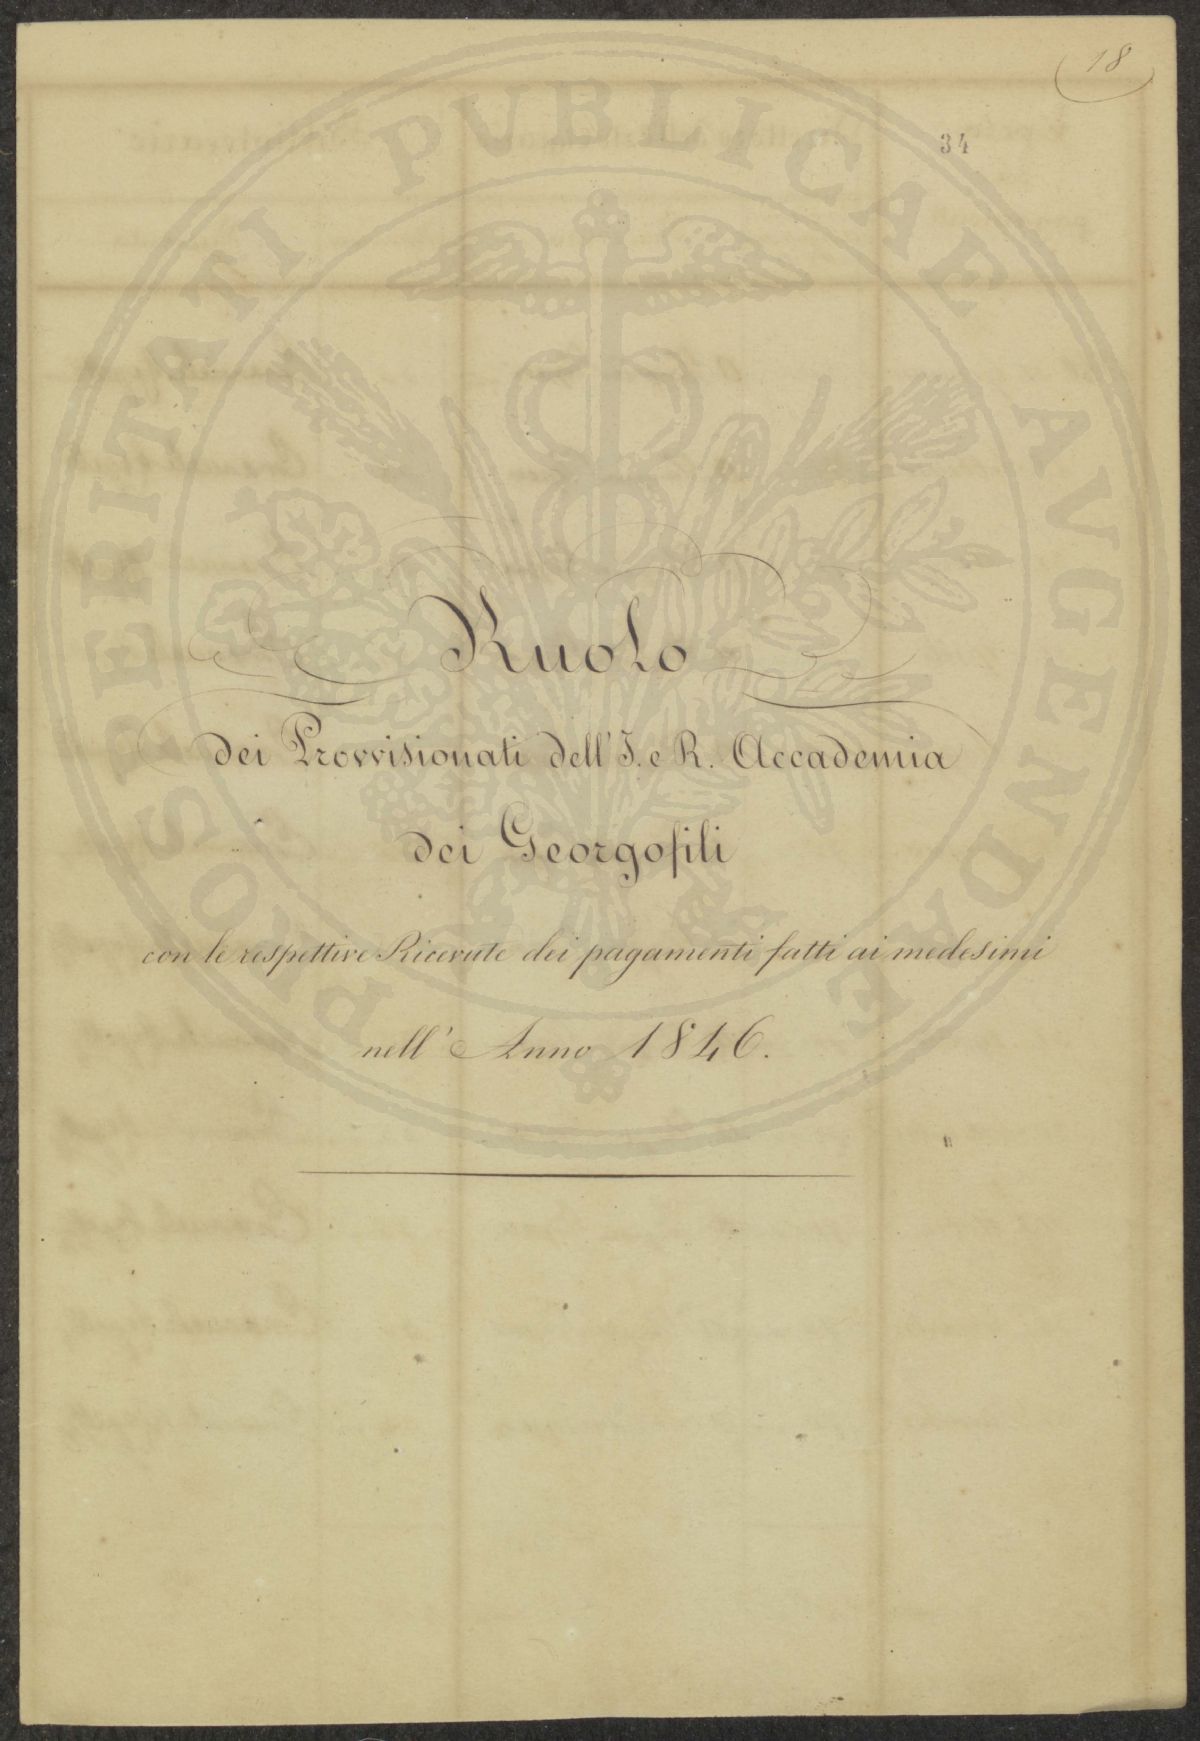 18
34
PROSPERITATI PUBLICAE AUGENDAE
Ruolo
dei Provvisionati dell' I. e R. Accademia
dei Georgofili
con le respettive Ricevute dei pagamenti fatti ai medesimi
nell' Anno 1846.